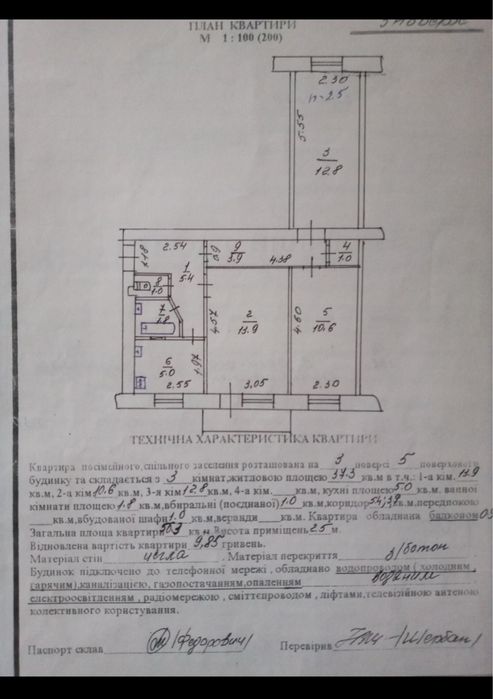 ПЛАН КВАРТИРИ
М 1 : 100 (200)
2.30
h=2.5
5.55
3
12.8
2.54
1.18
1
5.4
0.9
9
3.9
4.38
4
1.0
8
1.0
7
1.8
4.57
2
13.9
4.60
5
10.6
6
5.0
1.97
2.55
3.05
2.30
ТЕХНІЧНА ХАРАКТЕРИСТИКА КВАРТИРИ
Квартира посімейного,спільного заселення розташована на 3 поверсі 5 поверхового
будинку та складається з 3 кімнат,житловою площею 37.3 кв.м в т.ч.: 1-а кім. 13.9
кв.м, 2-а кім 10.6 кв.м, 3-я кім 12.8 кв.м, 4-а кім. кв.м, кухні площею 5.0 кв.м. ванної
кімнати площею 1.8 кв.м,вбиральні (поєднаної) 1.0 кв.м,коридор 5.4; 3.9 кв.м,передпокою
кв.м,вбудованої шафи 1.0 кв.м,веранди кв.м. Квартира обладнана балконом 0.9
Загальна площа квартири 50.3 кв м Висота приміщень 2.5 м.
Відновлена вартість квартири 9,85 гривень.
Матеріал стін цегла . Матеріал перекриття з/бетон
Будинок підключено до телефонної мережі , обладнано водопроводом ( холодним ,
гарячим),каналізацією, газопостачанням,опаленням водяним
електроосвітленням , радіомережою , сміттєпроводом , ліфтами,телевізійною антеною
колективного користування.
Паспорт склав /Федорович/ Перевірив /Щербан/